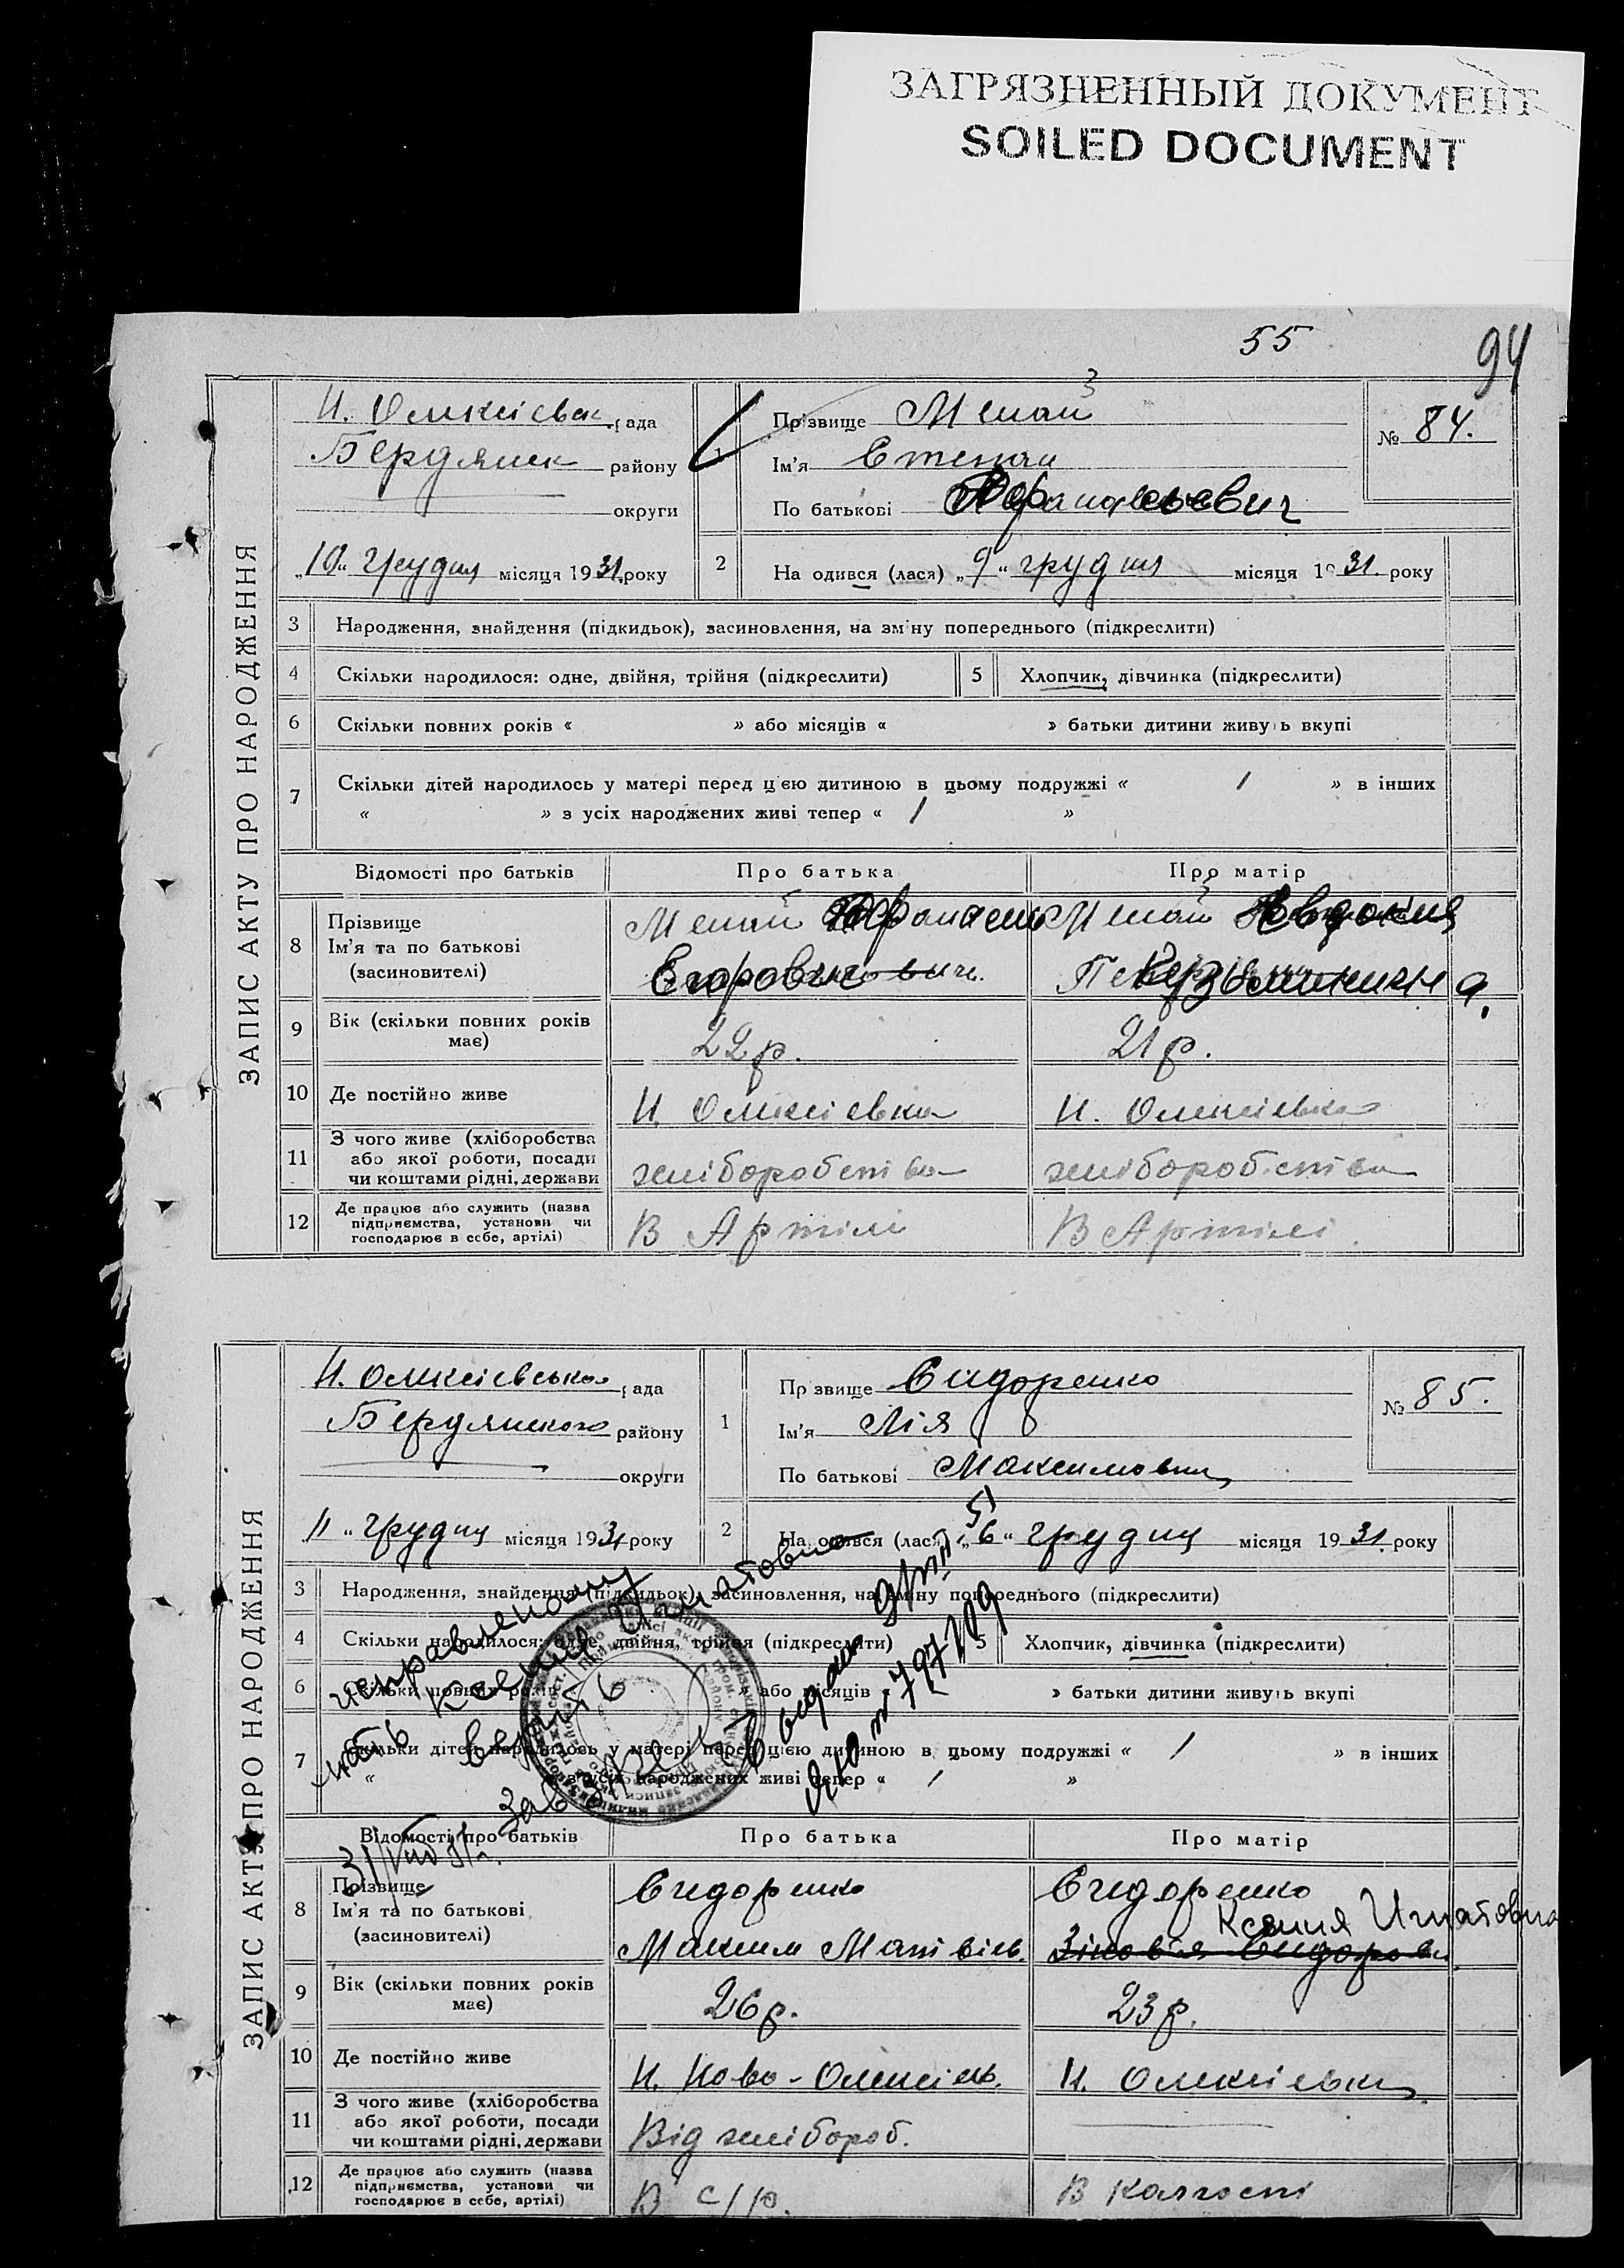 ЗАГРЯЗНЕННЫЙ ДОКУМЕНТ
SOILED DOCUMENT
55
94
ЗАПИС АКТУ ПРО НАРОДЖЕННЯ
Н. Олексієвськ рада
Бердянськ району
округи
„10“ грудня місяця 1931 року
1
Прізвище Мекай
Ім'я Степан
По батькові Афанасьевич
№ 84.
2 На одився (лася) „9“ грудня місяця 1931 року
3 Народження, знайдення (підкидьок), засиновлення, на зміну попереднього (підкреслити)
4 Скільки народилося: одне, двійня, трійня (підкреслити)
5 Хлопчик, дівчинка (підкреслити)
6 Скільки повних років « » або місяців « » батьки дитини живуть вкупі
7 Скільки дітей народилось у матері перед цією дитиною в цьому подружжі « 1 » в інших
« » з усіх народжених живі тепер « 1 »
Відомості про батьків Про батька Про матір
8 Прізвище
Ім'я та по батькові
(засиновителі)
Афанасий
Егорович
Евдокия
9 Вік (скільки повних років має) 22 р. 21 р.
10 Де постійно живе Н. Олексієвка Н. Олексієвка
11 З чого живе (хліборобства або якої роботи, посади чи коштами рідні, держави хліборобства хліборобства
12 Де працює або служить (назва підприємства, установи чи господарює в себе, артілі) В Артілі В Артілі.
ЗАПИС АКТУ ПРО НАРОДЖЕННЯ
Н. Олексієвська рада
Бердянського району
округи
„11“ грудня місяця 1931 року
1
Прізвище Сидоренко
Ім'я Лія
По батькові Максимовна
№ 85.
2 На одився (лася) „6“ грудня місяця 1931 року
3 Народження, знайдення (підкидьок), засиновлення, на зміну попереднього (підкреслити)
4 Скільки народилося: одне, двійня, трійня (підкреслити)
5 Хлопчик, дівчинка (підкреслити)
6 Скільки повних років « » або місяців « » батьки дитини живуть вкупі
7 Скільки дітей народилось у матері перед цією дитиною в цьому подружжі « 1 » в інших
« » з усіх народжених живі тепер « 1 »
исправленому
мать Ксения Игнатовна
верить
Відомості про батьків Про батька Про матір
8 Прізвище
Ім'я та по батькові
(засиновителі)
Сидоренко
Максим Матвієв.
Сидоренко
Ксения Игнатовна
Зіновія Сидоровн
9 Вік (скільки повних років має) 26 р. 23 р.
10 Де постійно живе Н. Ново-Олексієв. Н. Олексієвка
11 З чого живе (хліборобства або якої роботи, посади чи коштами рідні, держави Від хлібороб.
12 Де працює або служить (назва підприємства, установи чи господарює в себе, артілі) В с/г. В Калгоспі